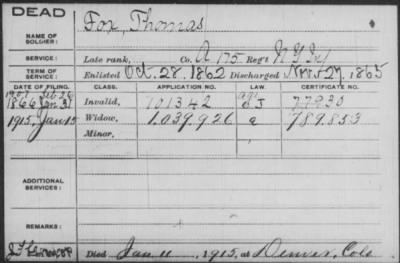 DEAD
NAME OF SOLDIER: Fox, Thomas
SERVICE: Late rank, Co. A 175 Reg't N.Y. Inf
TERM OF SERVICE: Enlisted Oct. 28, 1862 Discharged Nov. 27, 1865
DATE OF FILING. CLASS. APPLICATION NO. LAW. CERTIFICATE NO.
1907 Feb 26
1866 Jan 31 Invalid, 101342 77930
1915, Jan 15 Widow, 1,039,926 a 789853
Minor,
ADDITIONAL SERVICES:
REMARKS:
Died Jan 11, 1915, at Denver, Colo